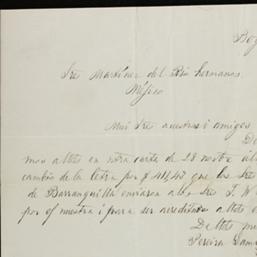 Bog
Sres Martínez del Rio hermanos
Méjico
Mui Sres nuestros i amigos
De
mos a Udes en ntra carta de 28
cambio de la letra por $ 4148 que los Sres
de Barranquilla enviaron a los Sres F. W
por of nuestra i para ser acreditada a Udes
De Udes mui
Pereira Gam